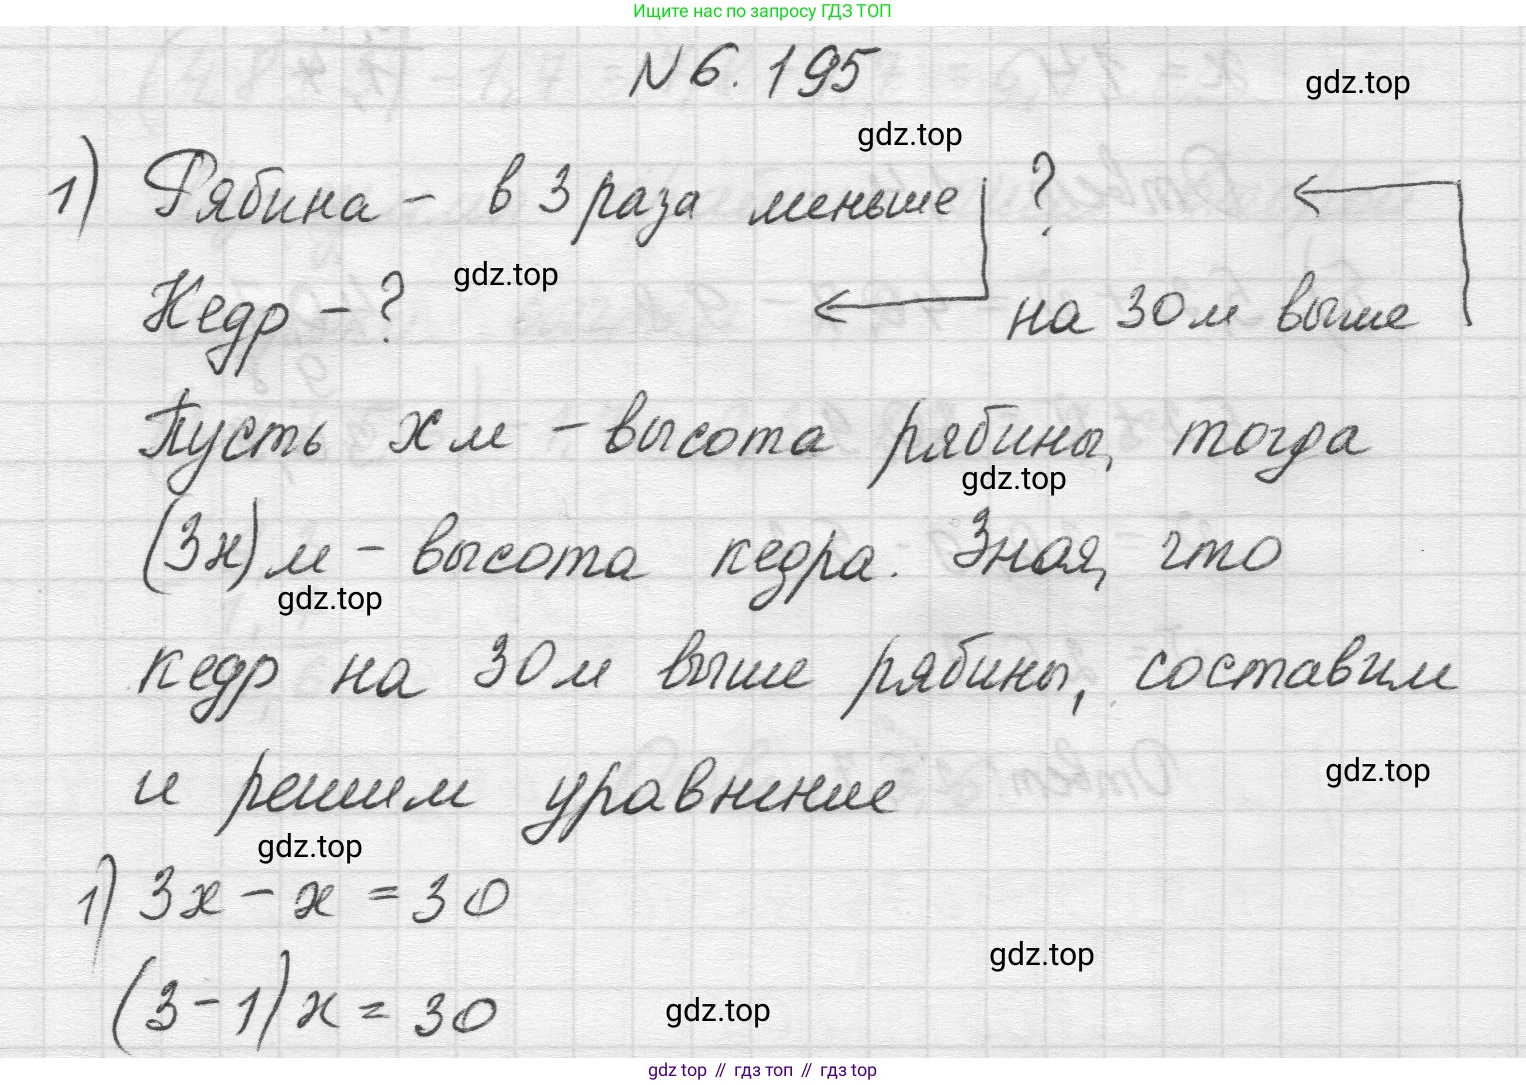 Ищите нас по запросу ГДЗ ТОП
N 6.195
gdz.top
gdz.top
1) Рябина - в 3 раза меньше ?
gdz.top
Кедр - ? на 30 м выше
Пусть х м - высота рябины, тогда
gdz.top
(3х) м - высота кедра. Зная, что
gdz.top
кедр на 30 м выше рябины, составим
и решим уравнение
gdz.top
gdz.top
1) 3х - х = 30
gdz.top
(3 - 1) х = 30
gdz.top
gdz top // гдз топ // gdz top